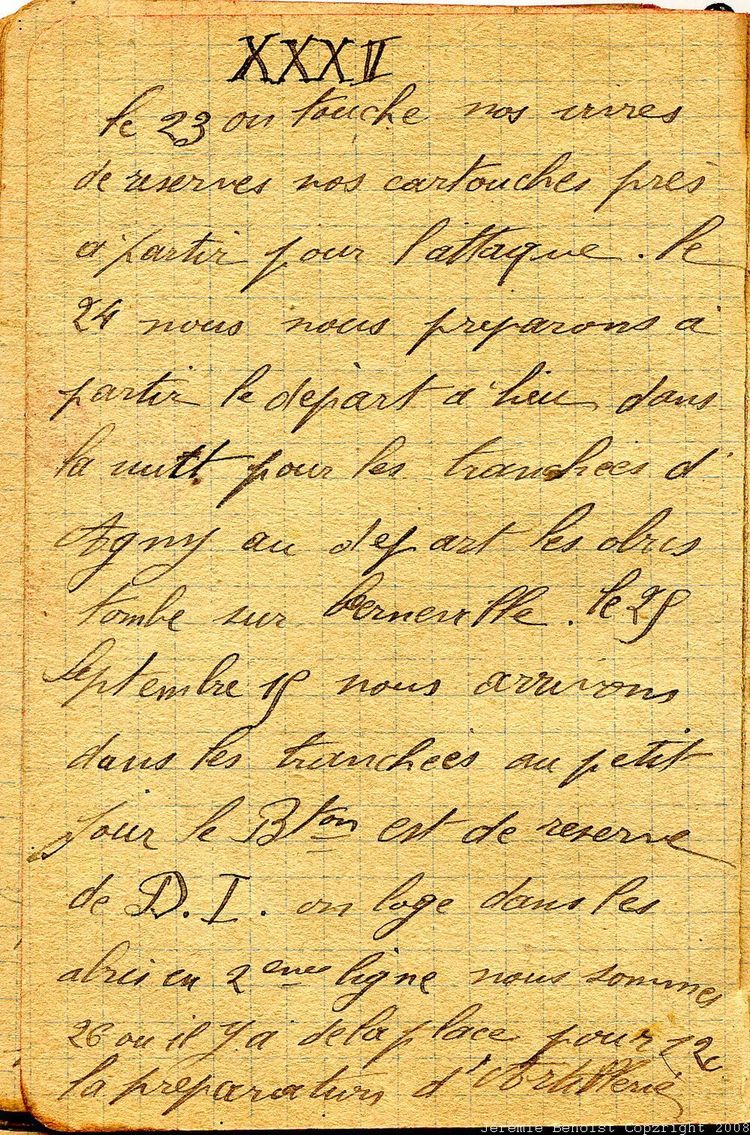 XXXII
le 23 on touche nos vivres
de reserves nos cartouches près
a partir pour l'attaque. le
24 nous nous preparons a
partir le départ a lieu dans
la nuit pour les tranchées d'
Agny au départ les obus
tombe sur Berneville. le 25
Septembre 15 nous arrivons
dans les tranchées au petit
jour le Bton est de reserve
de D.I. on loge dans les
abris en 2eme ligne nous sommes
26 ou il y a de la place pour 12
la preparation d'Artillerie
Jeremie Benoist Copyright 2008